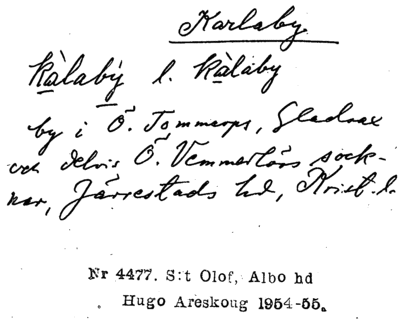 Karlaby
kàlabý l. kàlàby
by i Ö. Tommarps, Gladsax
och delvis Ö. Vemmerlövs sock-
nar, Järrestads hd, Krist. l.
Nr 4477. S:t Olof, Albo hd
Hugo Areskoug 1954-55.